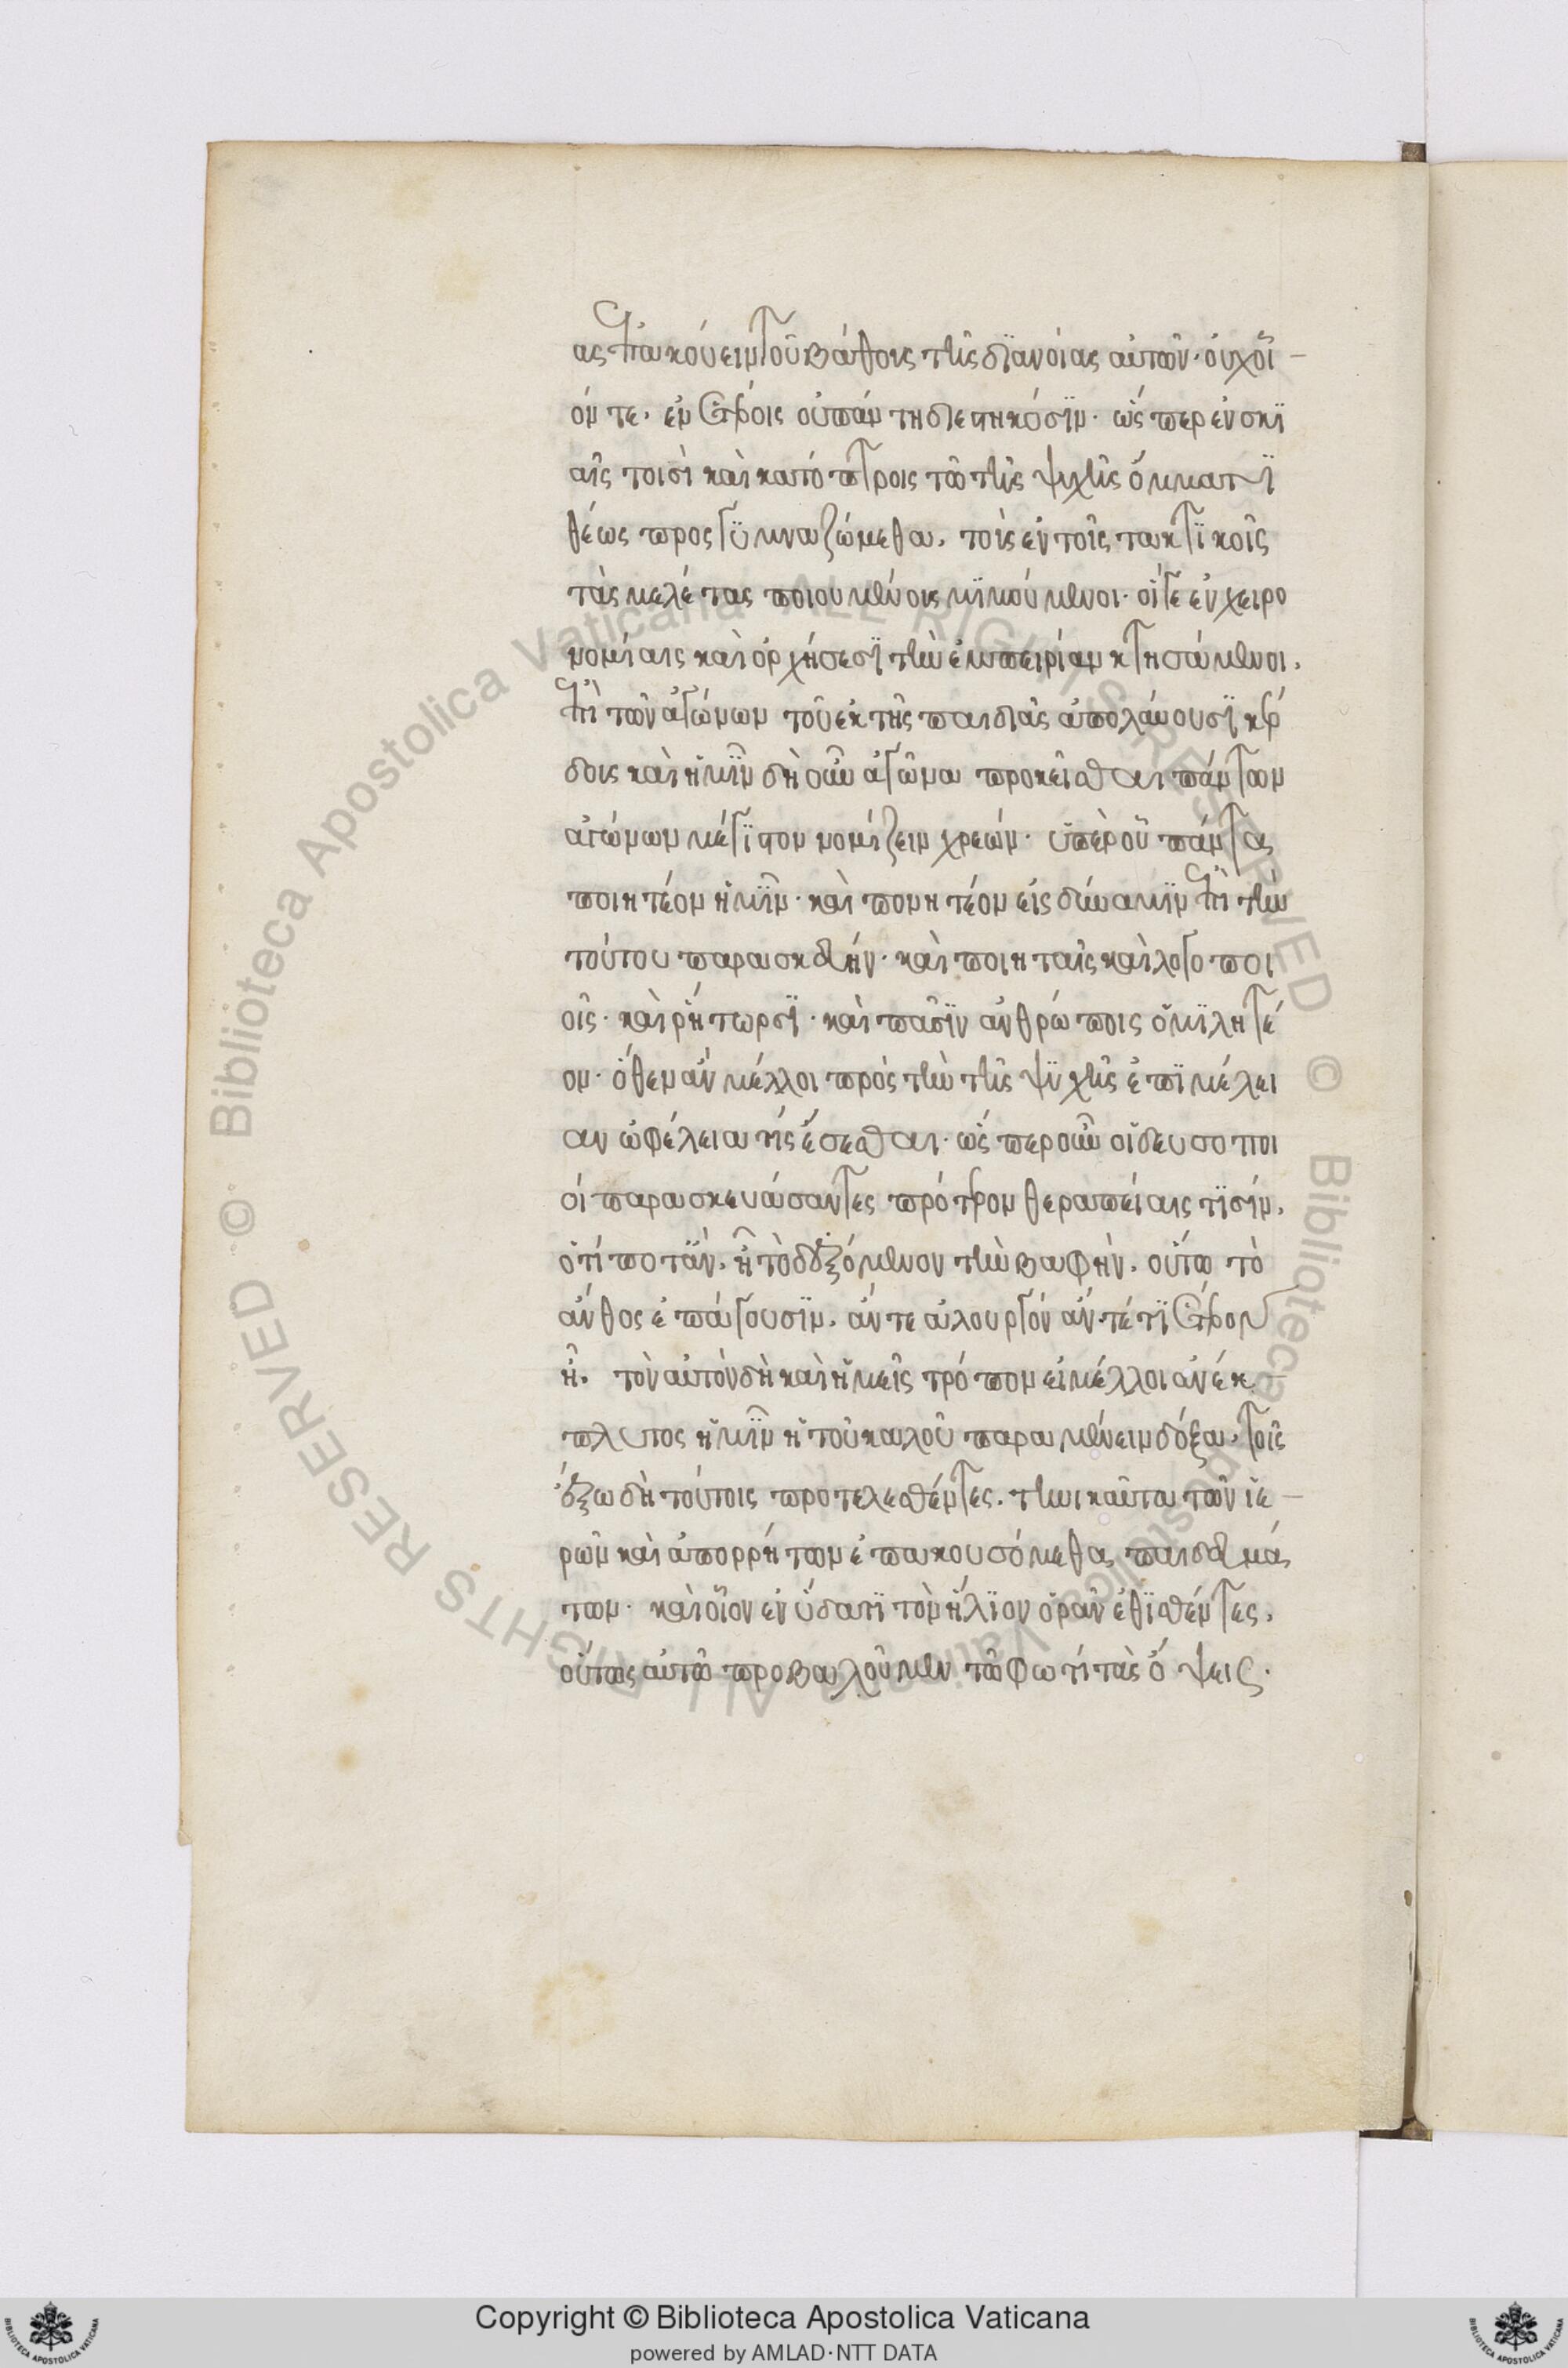 ας ἐπακούειν τοῦ βάθους τῆς διανοίας αὐτῶν· οὐχ οἷ
όν τε. ἐν ἑτέροις οὐ πάντη διεστηκόσιν· ὥσπερ ἐν σκι
αῖς τισὶ καὶ κατόπτροις τῷ τῆς ψυχῆς ὄμματι
θέως προσγυμναζώμεθα. τοὺς ἐν τοῖς τακτικοῖς
τὰς μελέτας ποιουμένους μιμούμενοι· οἵγε ἐν χειρο
νομίαις καὶ ὀρχήσεσι τὴν ἐμπειρίαν κτησάμενοι.
ἐπὶ τῶν ἀγώνων τοῦ ἐκ τῆς παιδιᾶς ἀπολάυουσι κέρ
δους καὶ ἡμῖν δὴ οὖν ἀγῶνα προκεῖσθαι πάντων
ἀγώνων μέγιστον νομίζειν χρεών· ὑπὲρ οὗ πάντα
ποιητέον ἡμῖν· καὶ πονητέον εἰς δύναμιν ἐπὶ τὴν
τούτου παρασκευήν· καὶ ποιηταῖς καὶ λογοποι
οῖς· καὶ ῥήτωρσι· καὶ πᾶσιν ἀνθρώποις ὁμιλητέ
ον· ὅθεν ἂν μέλλοι πρὸς τὴν τῆς ψυχῆς ἐπιμέλει
αν ὠφέλεια τὶς ἔσεσθαι· ὥσπερ οὖν οἱ δευσοποι
οί παρασκευάσαντες πρότερον θεραπείαις τισίν.
ὅτί ποτ ἂν. ἦ τὸ δεξόμενον τὴν βαφὴν. οὕτω τὸ
ἄνθος ἐπάγουσιν. ἄν τε ἁλουργόν ἄν τέ τι ἕτερον
ἦ. τὸν αὐτὸν δὴ καὶ ἡμεῖς τρόπον εἰ μέλλοι ἀνέκ
πλυτος ἡμῖν ἡ τοῦ καλοῦ παραμένειν δόξα. τοῖς
ἔξω δὴ τούτοις προτελεσθέντες. τηνικαῦτα τῶν ἱε
ρῶν καὶ ἀπορρήτων ἐπακουσόμεθα παιδευμά
των· καὶ οἷον ἐν ὕδατι τὸν ἥλιον ὁρᾶν ἐθισθέντες.
οὕτως αὐτῶ προβαλοῦμεν τῶ φωτί τὰς ὄψεις.
Copyright © Biblioteca Apostolica Vaticana
powered by AMLAD·NTT DATA